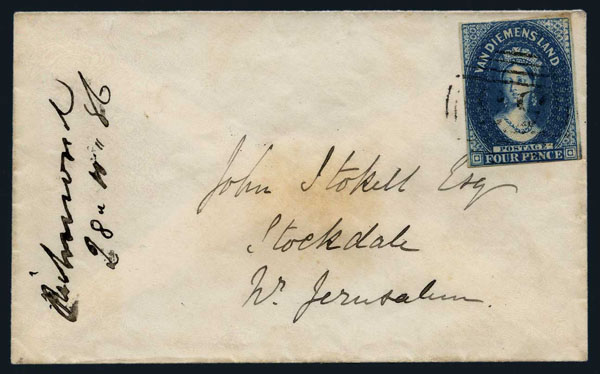 VAN DIEMENS LAND
POSTAGE
FOUR PENCE
John Stokell Esq
Stockdale
Nr. Jerusalem.
Richmond